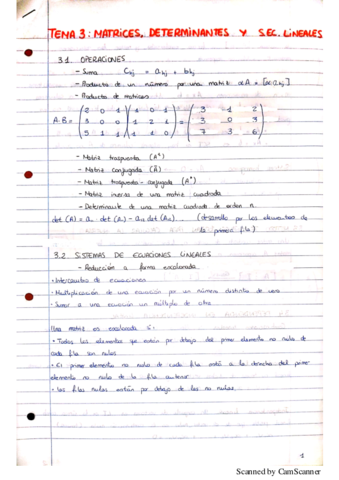 TEMA 3: MATRICES, DETERMINANTES Y SEC. LINEALES
3.1. OPERACIONES
- Suma Cij = aij + bij
- Producto de un número por una matriz αA = [α·aij]
- Producto de matrices
A·B = (2 0 1) (1 0 1) = (3 1 2)
(3 0 0) (1 2 1) (3 0 3)
(5 1 1) (1 1 0) (7 3 6)
- Matriz traspuesta
- Matriz conjugada (Ā)
- Matriz traspuesta - conjugada (A*)
- Matriz inversa de una matriz cuadrada
- Determinante de una matriz cuadrada de orden n.
det (A) = det det (desarrollo por los elementos de
la primera fila)
3.2 SISTEMAS DE ECUACIONES LINEALES
- Reducción a forma escalonada
• Intercambio de ecuaciones
• Multiplicación de una ecuación por un número distinto de cero
• Sumar a una ecuación un múltiplo de otra
Una matriz es escalonada si:
• Todos los elementos que están por debajo del primer elemento no nulo de
cada fila son nulos
• El primer elemento no nulo de cada fila está a la derecha del primer
elemento no nulo de la fila anterior
• Las filas nulas están por debajo de las no nulas
1
Scanned by CamScanner